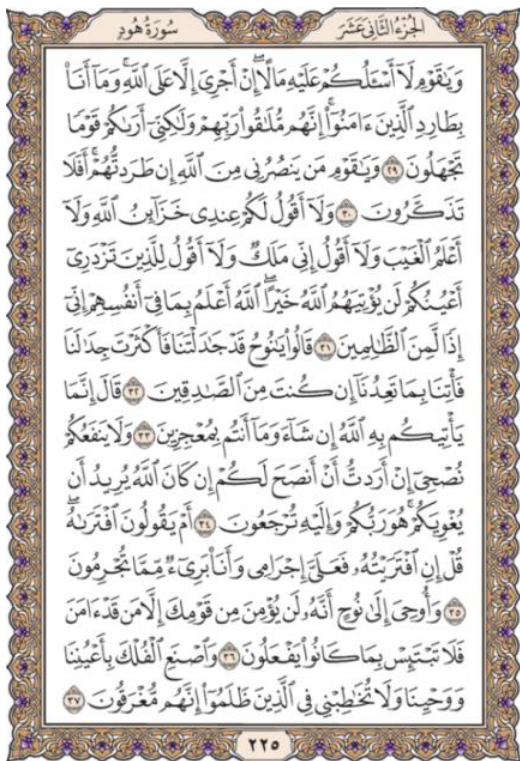 الجُزْءُ الثَّانِي عَشَرَ
سُورَةُ هُودٍ
وَيَٰقَوْمِ لَآ أَسْـَٔلُكُمْ عَلَيْهِ مَالًاۖ إِنْ أَجْرِىَ إِلَّا عَلَى ٱللَّهِۚ وَمَآ أَنَا۠
بِطَارِدِ ٱلَّذِينَ ءَامَنُوٓا۟ۚ إِنَّهُم مُّلَٰقُوا۟ رَبِّهِمْ وَلَٰكِنِّىٓ أَرَىٰكُمْ قَوْمًا
تَجْهَلُونَ ٢٩ وَيَٰقَوْمِ مَن يَنصُرُنِى مِنَ ٱللَّهِ إِن طَرَدتُّهُمْۚ أَفَلَا
تَذَكَّرُونَ ٣٠ وَلَآ أَقُولُ لَكُمْ عِندِى خَزَآئِنُ ٱللَّهِ وَلَآ
أَعْلَمُ ٱلْغَيْبَ وَلَآ أَقُولُ إِنِّى مَلَكٌ وَلَآ أَقُولُ لِلَّذِينَ تَزْدَرِىٓ
أَعْيُنُكُمْ لَن يُؤْتِيَهُمُ ٱللَّهُ خَيْرًاۖ ٱللَّهُ أَعْلَمُ بِمَا فِىٓ أَنفُسِهِمْۖ إِنِّىٓ
إِذًا لَّمِنَ ٱلظَّٰلِمِينَ ٣١ قَالُوا۟ يَٰنُوحُ قَدْ جَٰدَلْتَنَا فَأَكْثَرْتَ جِدَٰلَنَا
فَأْتِنَا بِمَا تَعِدُنَآ إِن كُنتَ مِنَ ٱلصَّٰدِقِينَ ٣٢ قَالَ إِنَّمَا
يَأْتِيكُم بِهِ ٱللَّهُ إِن شَآءَ وَمَآ أَنتُم بِمُعْجِزِينَ ٣٣ وَلَا يَنفَعُكُمْ
نُصْحِىٓ إِنْ أَرَدتُّ أَنْ أَنصَحَ لَكُمْ إِن كَانَ ٱللَّهُ يُرِيدُ أَن
يُغْوِيَكُمْۚ هُوَ رَبُّكُمْ وَإِلَيْهِ تُرْجَعُونَ ٣٤ أَمْ يَقُولُونَ ٱفْتَرَىٰهُۖ
قُلْ إِنِ ٱفْتَرَيْتُهُۥ فَعَلَىَّ إِجْرَامِى وَأَنَا۠ بَرِىٓءٌ مِّمَّا تُجْرِمُونَ
٣٥ وَأُوحِىَ إِلَىٰ نُوحٍ أَنَّهُۥ لَن يُؤْمِنَ مِن قَوْمِكَ إِلَّا مَن قَدْ ءَامَنَ
فَلَا تَبْتَئِسْ بِمَا كَانُوا۟ يَفْعَلُونَ ٣٦ وَٱصْنَعِ ٱلْفُلْكَ بِأَعْيُنِنَا
وَوَحْيِنَا وَلَا تُخَٰطِبْنِى فِى ٱلَّذِينَ ظَلَمُوٓا۟ۚ إِنَّهُم مُّغْرَقُونَ ٣٧
٢٢٥